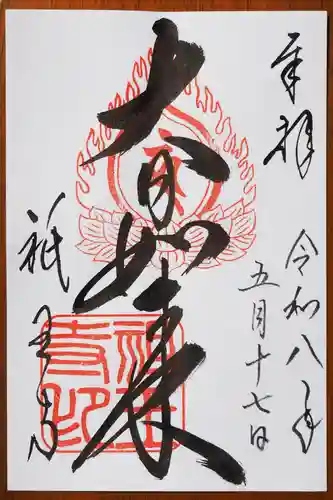 奉拝
令和八年
五月十七日
大日如来
祇王寺
祇王寺印